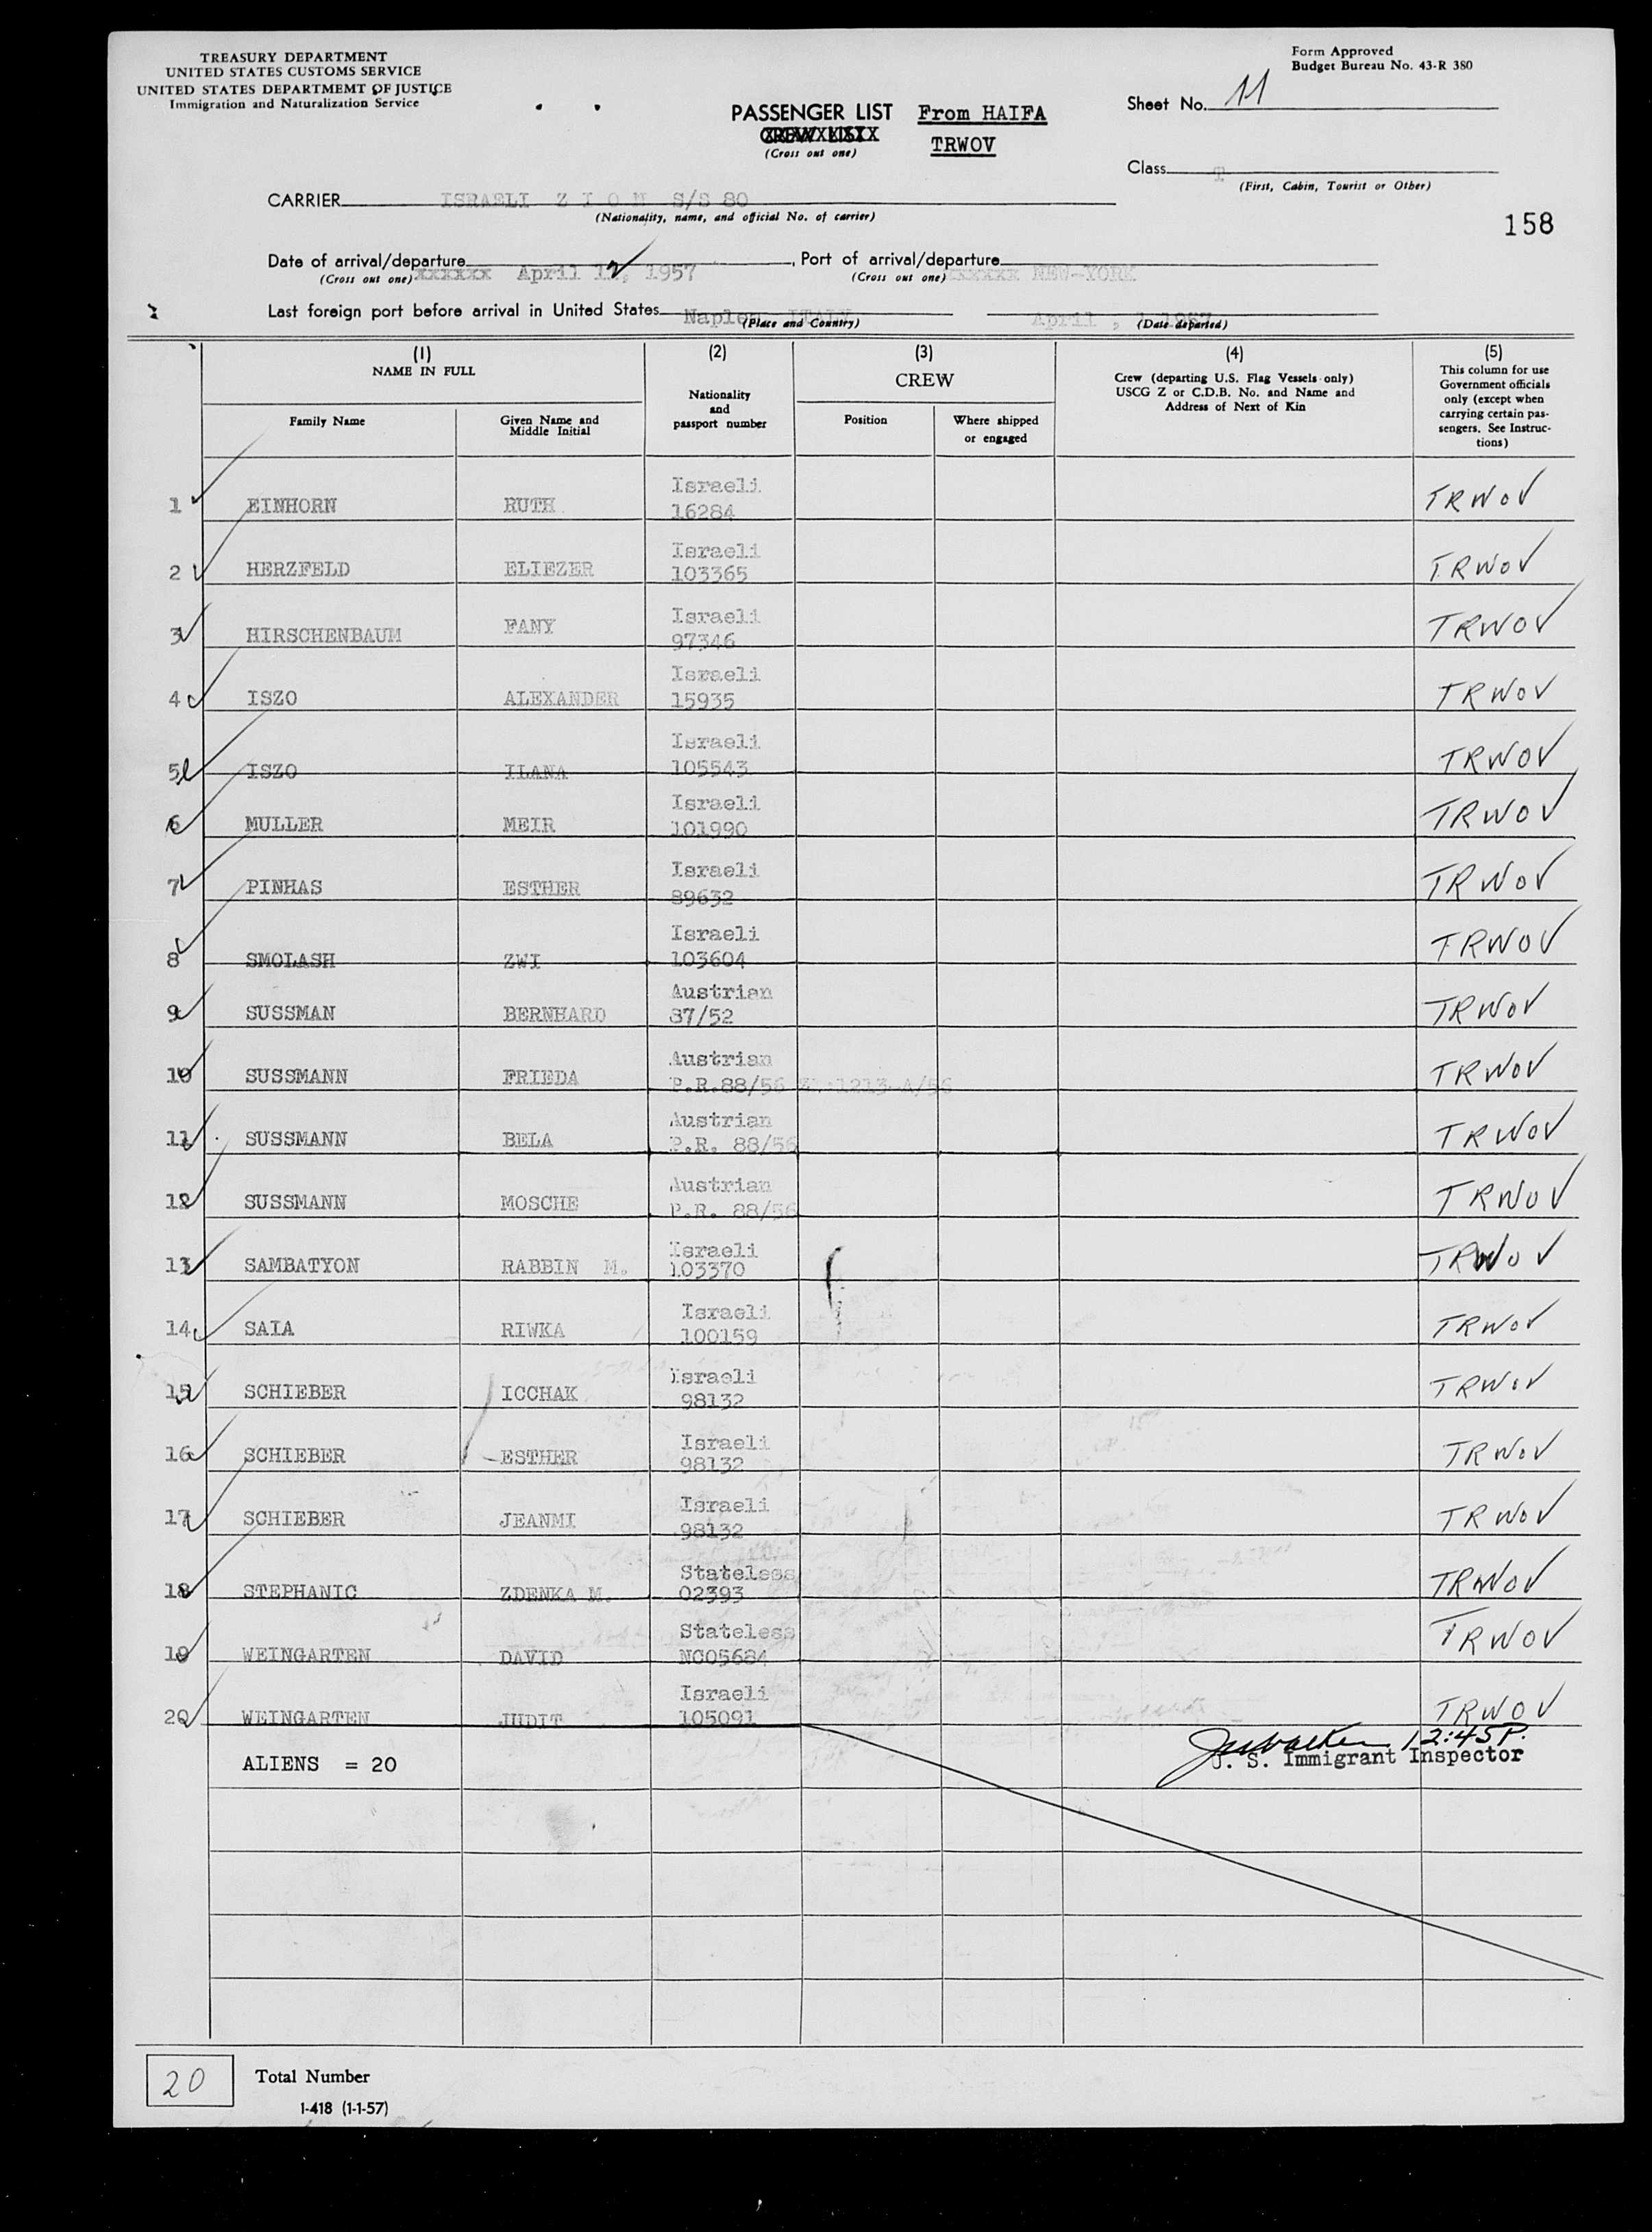 TREASURY DEPARTMENT
UNITED STATES CUSTOMS SERVICE
UNITED STATES DEPARTMEMT OF JUSTICE
Immigration and Naturalization Service
Form Approved
Budget Bureau No. 43-R 380
PASSENGER LIST From HAIFA
CREW LIST
(Cross out one)
TRWOV
Sheet No. 11
Class T
(First, Cabin, Tourist or Other)
CARRIER ISRAELI Z I O N S/S 80
(Nationality, name, and official No. of carrier)
158
Date of arrival/departure xxxxxx April 12, 1957, Port of arrival/departure xxxxxx NEW-YORK
(Cross out one) (Cross out one)
Last foreign port before arrival in United States Naples ITALY April , 1957
(Place and Country) (Date departed)
(1) NAME IN FULL
Family Name
Given Name and Middle Initial
(2)
Nationality and passport number
(3)
CREW
Position
Where shipped or engaged
(4)
Crew (departing U.S. Flag Vessels only)
USCG Z or C.D.B. No. and Name and
Address of Next of Kin
(5)
This column for use
Government officials
only (except when
carrying certain pas-
sengers. See Instruc-
tions)
1 EINHORN RUTH Israeli 16284 TRWOV
2 HERZFELD ELIEZER Israeli 103365 TRWOV
3 HIRSCHENBAUM FANY Israeli 97346 TRWOV
4 ISZO ALEXANDER Israeli 15935 TRWOV
5 ISZO ILANA Israeli 105543 TRWOV
6 MULLER MEIR Israeli 101990 TRWOV
7 PINHAS ESTHER Israeli 89632 TRWOV
8 SMOLASH ZWI Israeli 103604 TRWOV
9 SUSSMAN BERNHARD Austrian 87/52 TRWOV
10 SUSSMANN FRIEDA Austrian P.R.88/56 1213-A/56 TRWOV
11 SUSSMANN BELA Austrian P.R. 88/56 TRWOV
12 SUSSMANN MOSCHE Austrian P.R. 88/56 TRWOV
13 SAMBATYON RABBIN M. Israeli 103370 TRWOV
14 SAIA RIWKA Israeli 100159 TRWOV
15 SCHIEBER ICCHAK Israeli 98132 TRWOV
16 SCHIEBER ESTHER Israeli 98132 TRWOV
17 SCHIEBER JEANMI Israeli 98132 TRWOV
18 STEPHANIC ZDENKA M. Stateless 02393 TRWOV
19 WEINGARTEN DAVID Stateless NC05684 TRWOV
20 WEINGARTEN JUDIT Israeli 105091 TRWOV
12:45 P.
ALIENS = 20
U. S. Immigrant Inspector
20 Total Number
I-418 (1-1-57)